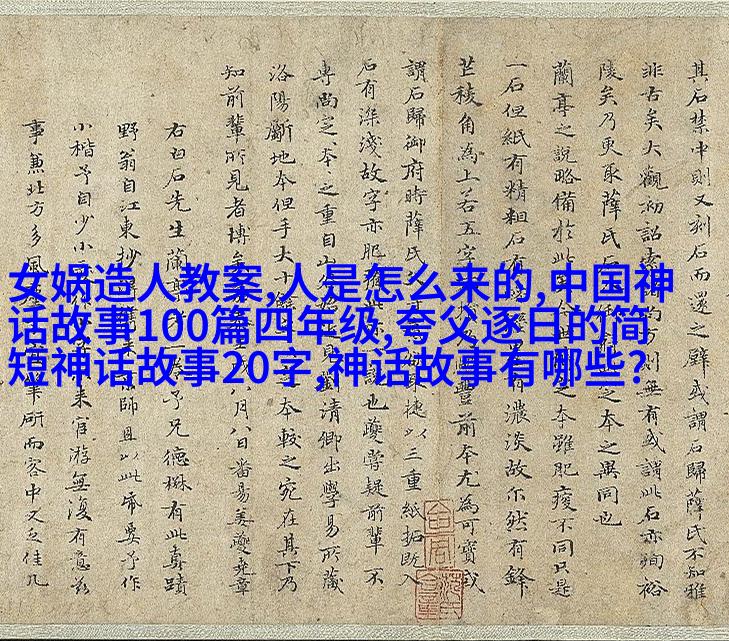 女娲造人教案,人是怎么来的,中国神
话故事100篇四年级,夸父逐日的简
短神话故事20字,神话故事有哪些?
其石禁中則又刻石而還之壁或謂石歸薛氏不知雅
非古矣大觀初詔方則無有或謂此石亦殉裕
陵矣乃更取薛氏之本之異同也
蘭亭之說略備於此之本雖肥瘦不同只是
一石但紙有精粗石有有濃淡故尔然有鋒
芒稜角為上若五字豐前本尤為可寶或
謂石歸御府時薛氏捷以三重紙拓既入
石有深淺故字亦肥也夔嘗疑前輩不
專尚定本本之重自對清卿出學易所藏
洛陽斷地本但手大十本較之宛在其下乃
知前輩所見者博八月八日番昜姜夔堯章
右白石先生蘭亭予兄德有此真蹟
野翁自江東抄師且以此帋要予作
小楷予自少小来官游無復有意茲
事兼北方多風筆研而客中又乏佳几